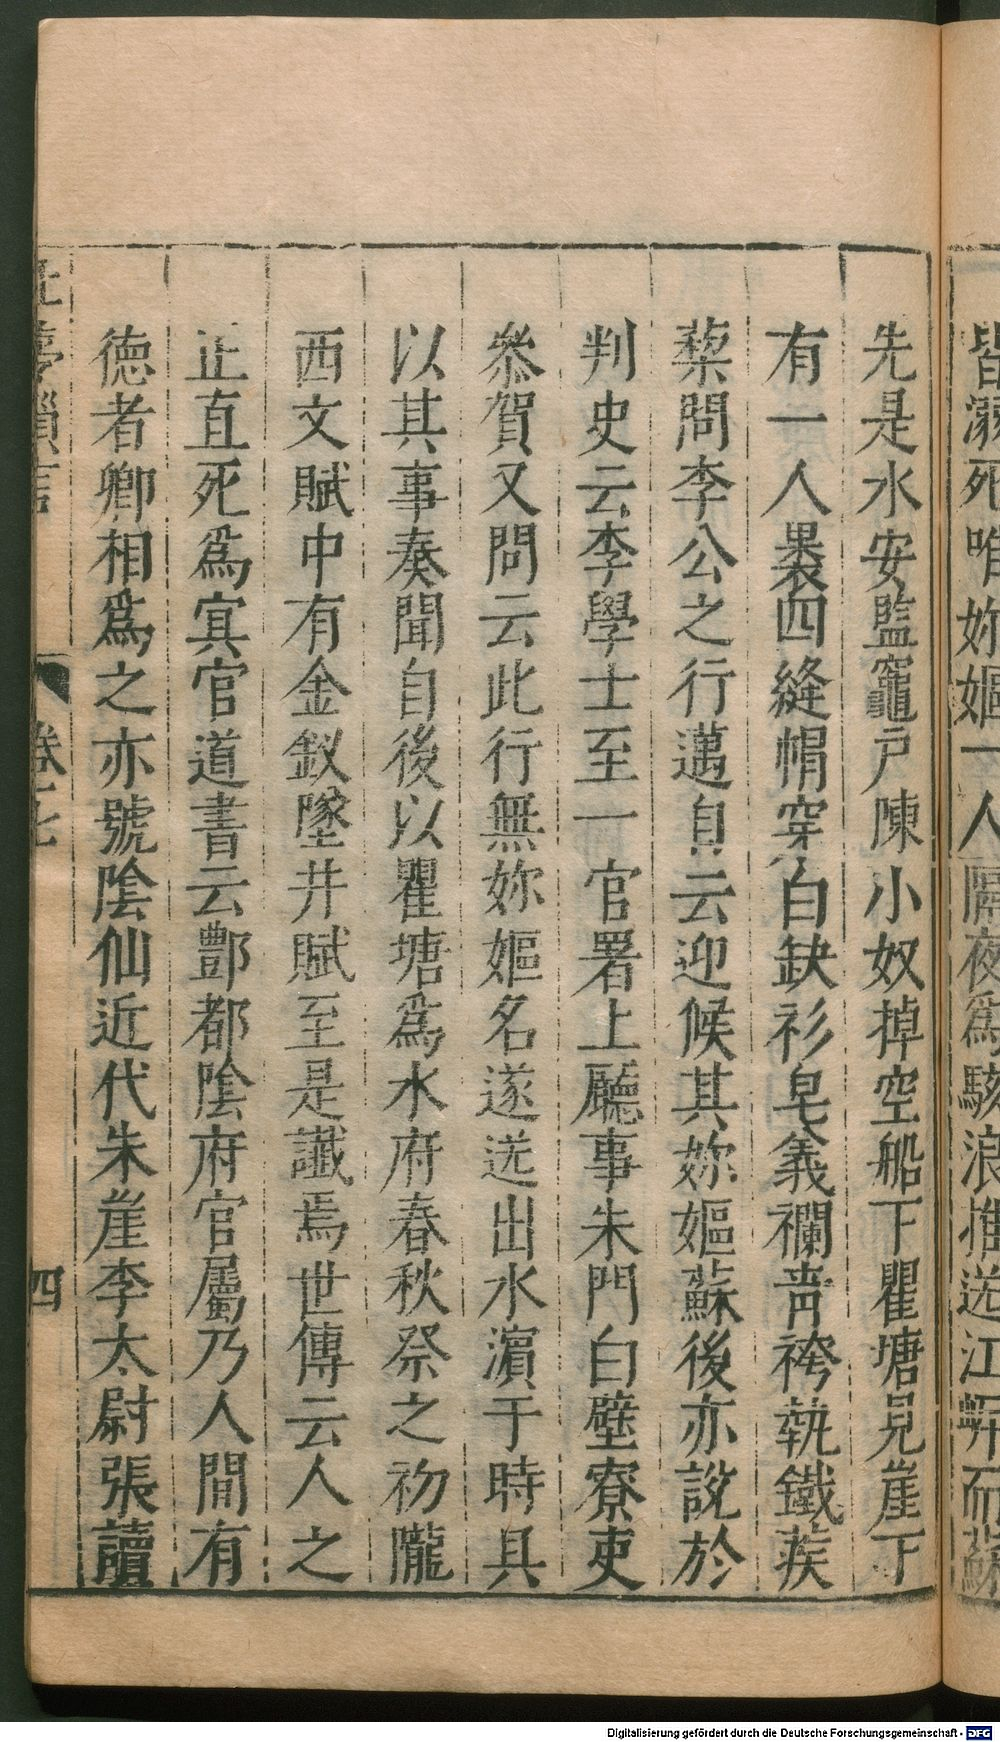 皆溺死唯妳嫗一人隔夜爲駭浪推送江岸而蘇
先是水安監竈戶陳小奴掉空船下瞿塘見崖下
有一人裹四縫帽穿白缺衫皂義襴青袴執鐵蒺
藜問李公之行邁自云迎候其妳嫗蘇後亦說於
判史云李學士至一官署上廳事朱門白壁寮吏
叅賀又問云此行無妳嫗名遂送出水濵于時具
以其事奏聞自後以瞿塘爲水府春秋祭之初隴
西文賦中有金釵墜井賦至是讖焉世傳云人之
正直死爲㝠官道書云酆都陰府官屬乃人間有
德者卿相爲之亦號陰仙近代朱崖李太尉張讀
夢瑣言 卷之七 四
Digitalisierung gefördert durch die Deutsche Forschungsgemeinschaft - DFG